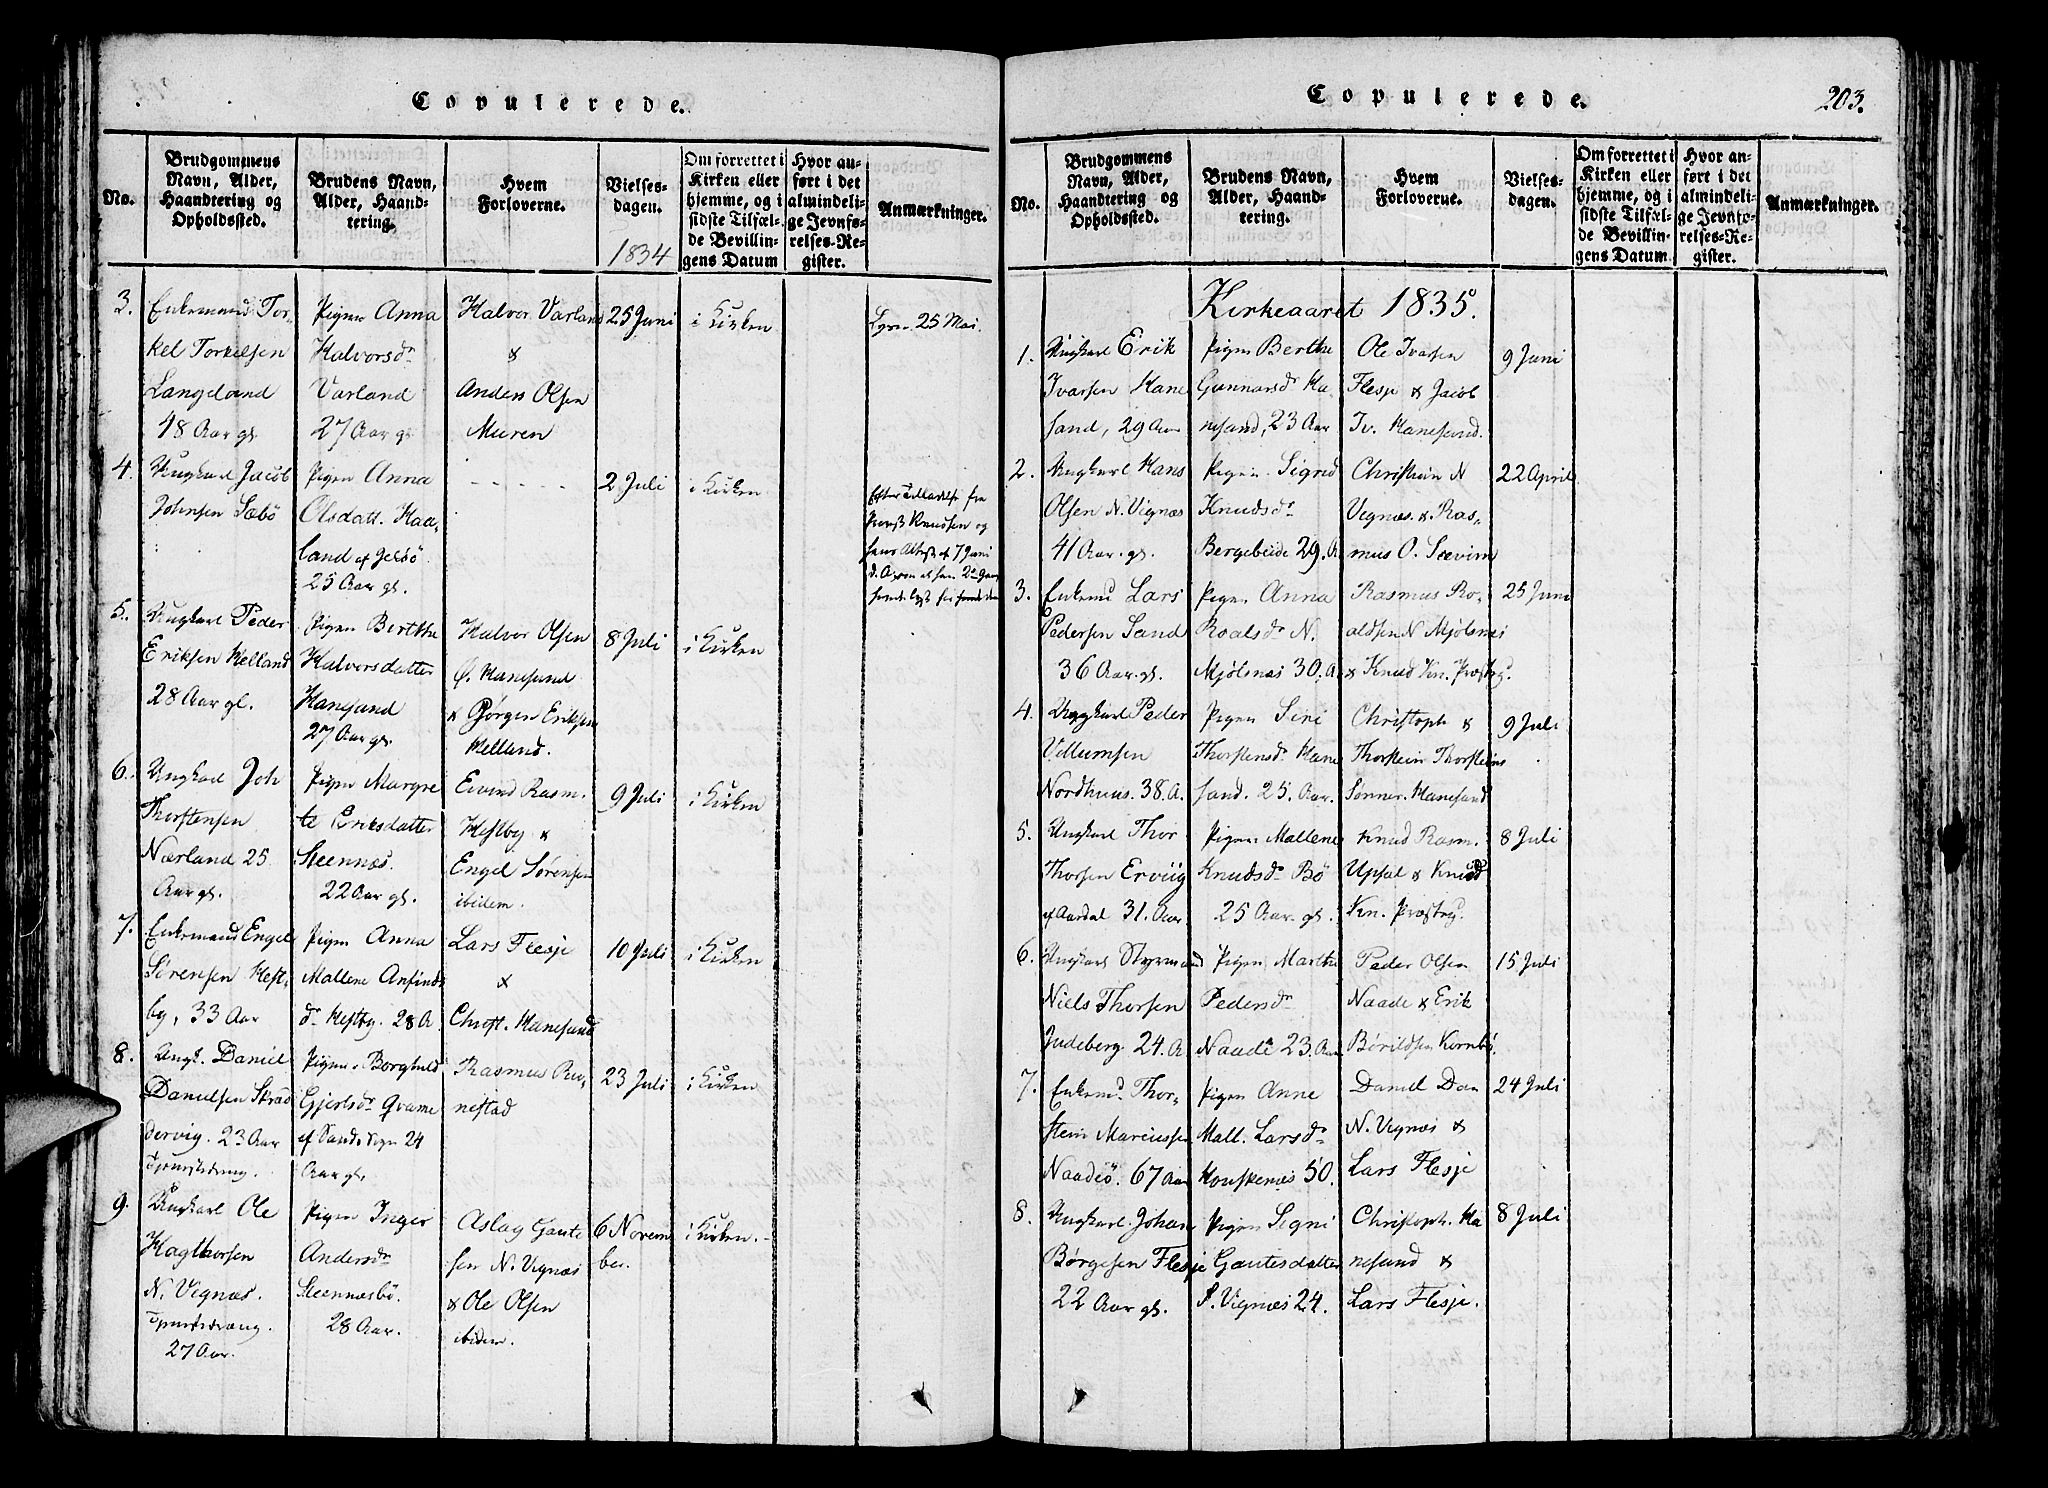 Copulerede.
No.
Brudgommens
Navn, Alder,
Haandtering og
Opholdssted.
Brudens Navn,
Alder, Haand=
tering.
Hvem
Forloverne.
Vielses=
dagen.
1834
Om forrettet i
Kirken eller
hjemme, og i
sidste Tilfæl=
de Bevillin=
gens Datum
Hvor an=
ført i det
almindeli=
ge Jevnfø=
relses=Re=
gister.
Anmærkninger.
3.
Enkemand Tor-
kel Torkelsen
Langeland
48 Aar gl.
Pigen Anna
Halvorsdr
Varland
27 Aar gl
Halvor Varland
&
Anders Olsen
Muren
25 Juni
i Kirken
Lyst 25 Mai.
4.
Ungkarl Jacob
Johnsen Sæbö
Pigen Anna
Olsdatt. Haa-
land af Jelsö
25 Aar gl.
- - - - -
2 Juli
i Kirken
Efter Tilladelse fra
Provst Knudsen og
hans Attest af 7 Juni
5.
Ungkarl Peder
Eriksen Helland
28 Aar gl.
Pigen Berthe
Halvorsdatter
Hanesund
27 Aar gl.
Halvor Olsen
Ø. Hanesund
& Gjörgen Eriksen
Helland.
8 Juli
i Kirken
6.
Ungkarl Joh
Thorstensen
Nærland 25
Aar gl.
Pigen Margre
te Eriksdatter
Steennæs.
22 Aar gl.
Eivind Rasm.
Hestby &
Engel Sørensen
ibidem.
9 Juli
i Kirken
7.
Enkemand Engel
Sörensen Hest-
by, 33 Aar
Pigen Anna
Mallene Anfinds
dr Hestby. 28 A.
Lars Flesje
&
Christ. Hanesund
10 Juli
i Kirken
8.
Ungk. Daniel
Danielsen Skrad
dervig. 23 Aar
Tjenestedreng.
Pigen Borghild
Gjertsdr Qvame
af Sands Sogn 24
Aar gl.
Rasmus Ru-
nestad
23 Juli
i Kirken
9.
Ungkarl Ole
Hagthorsen
N. Vignæs.
Tjenestedreng.
27 Aar.
Pigen Inger
Andersdr
Steennæsbö.
28 Aar.
Aslag Gaute
sen N. Vignæs
& Ole Olsen
ibidem.
6 Novem
ber.
i Kirken.
Copulerede.
203.
No.
Brudgommens
Navn, Alder,
Haandtering og
Opholdssted.
Brudens Navn,
Alder, Haand=
tering.
Hvem
Forloverne.
Vielses=
dagen.
Om forrettet i
Kirken eller
hjemme, og i
sidste Tilfæl=
de Bevillin=
gens Datum
Hvor an=
ført i det
almindeli=
ge Jevnfø=
relses=Re=
gister.
Anmærkninger.
Kirkeaaret 1835.
1.
Ungkarl Erik
Ivarsen Hane
sund, 29 Aar
Pigen Berthe
Gunnarsdr Ha-
nesund, 23 Aar
Ole Ivarsen
Flesje & Jacob
Iv. Hanesund.
9 Juni
2.
Ungkarl Hans
Olsen N. Vignæs
41 Aar. gl.
Pigen Sigrid
Knudsdr
Bergebeide 29. A
Christian N
Vignæs. & Ras-
mus O. Sævim
22 April
3.
Enkemd Lars
Pedersen Sand
36 Aar. gl.
Pigen Anna
Roalsdr N.
Mjölsnæs 30. A.
Rasmus Ro-
aldsen N Mjölsnæs
& Knud Kn. Præstry.
25 Juni
4.
Ungkarl Peder
Villumsen
Nordhuus. 38. A.
Pigen Siri
Thorstensdr Hane
sund. 25. Aar.
Christoph &
Thorstein Thorsteins
Sønner. Hanesund
9 Juli
5.
Ungkarl Thor
Thorsen Erviig
af Aardal 31. Aar
Pigen Mallene
Knudsdr Bö
25 Aar. gl.
Knud Rasm.
Upsal & Knud
Kn. Præstry.
8 Juli
6.
Ungkarl Styrmand
Niels Thorsen
Judeberg 24. A
Pigen Marthe
Pedersdr
Naade 23. Aar
Peder Olsen
Naade & Erik
Börildsen Kornbö.
15 Juli
7.
Enkemd Thor-
stein Mariussen
Naadeö. 67 Aar
Pigen Anne
Mall. Larsdr
Houskenæs 50.
Daniel Dan
N. Vignæs &
Lars Flesje
24 Juli
8.
Ungkarl Johan
Børgesen Flesje
22 Aar gl.
Pigen Signi
Gautesdatter
S. Vignæs 24.
Christoph. Ha
nesund &
Lars Flesje.
8 Juli